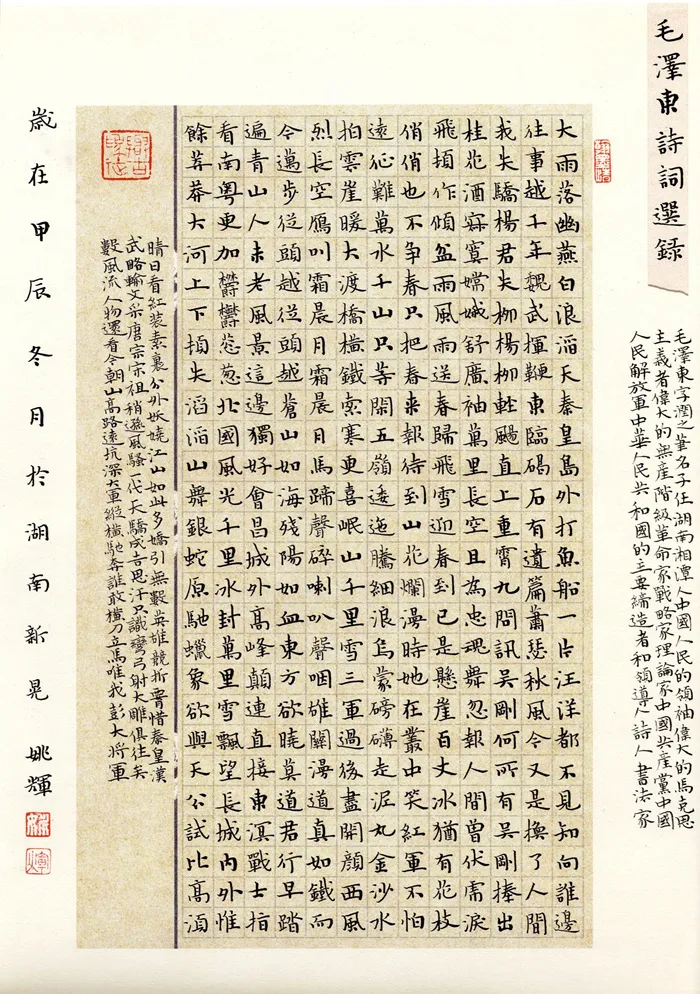 毛澤東詩詞選録
毛澤東字潤之筆名子任湖南湘潭人中國人民的領袖偉大的馬克思
主義者偉大的無産階級革命家戰略家理論家中國共産黨中國
人民解放軍中華人民共和國的主要締造者和領導人詩人書法家
大雨落幽燕白浪滔天秦皇島外打魚船一片汪洋都不見知向誰邊
往事越千年魏武揮鞭東臨碣石有遺篇蕭瑟秋風今又是換了人間
我失驕楊君失柳楊柳輕颺直上重霄九問訊吳剛何所有吳剛捧出
桂花酒寂寞嫦娥舒廣袖萬里長空且為忠魂舞忽報人間曾伏虎淚
飛頓作傾盆雨風雨送春歸飛雪迎春到已是懸崖百丈冰猶有花枝
俏俏也不争春只把春来報待到山花爛漫時她在叢中笑紅軍不怕
遠征難萬水千山只等閑五嶺逶迤騰細浪烏蒙磅礴走泥丸金沙水
拍雲崖暖大渡橋橫鐵索寒更喜岷山千里雪三軍過後盡開顏西風
烈長空雁叫霜晨月霜晨月馬蹄聲碎喇叭聲咽雄關漫道真如鐵而
今邁步從頭越從頭越蒼山如海殘陽如血東方欲曉莫道君行早踏
遍青山人未老風景這邊獨好會昌城外高峰顛連直接東溟戰士指
看南粵更加鬱鬱葱葱北國風光千里冰封萬里雪飄望長城内外惟
餘莽莽大河上下頓失滔滔山舞銀蛇原馳蠟象欲與天公試比高須
晴日看紅装素裹分外妖嬈江山如此多嬌引無數英雄競折腰惜秦皇漢
武略輸文采唐宗宋祖稍遜風騷一代天驕成吉思汗只識彎弓射大雕俱往矣
數風流人物還看今朝山高路遠坑深大軍縱橫馳奔誰敢橫刀立馬唯我彭大將軍
歲在甲辰冬月於湖南新晃姚輝